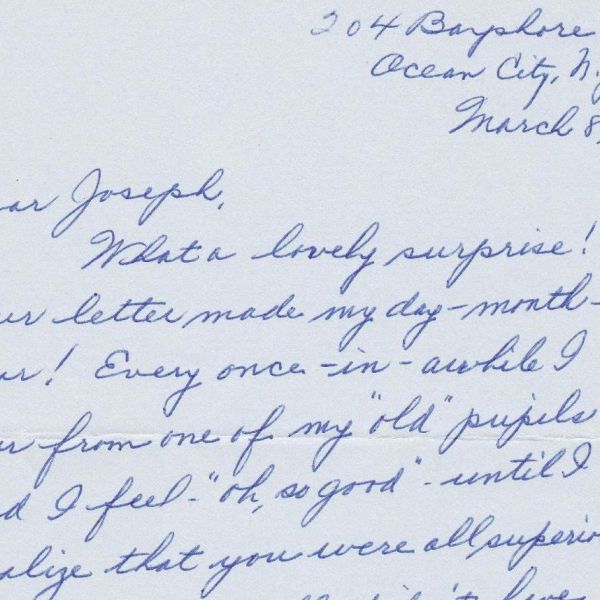 204 Bayshore
Ocean City, N.J
March 8,
ar Joseph,
What a lovely surprise!
ur letter made my day-month-
ar! Every once-in-awhile I
r from one of my "old" pupils
d I feel-"oh, so good"-until I
alize that you were all superio